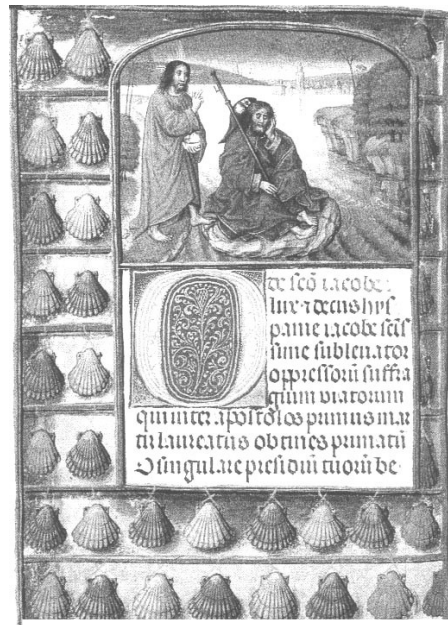 de sco iacobe.
lux ⁊ decus hys
panie iacobe scis
sime subleuator
oppressoru suffra
gium viatorum
qui inter apostolos primus mar
tir laureatus obtines primatu
O singulare presidiu tuoru be